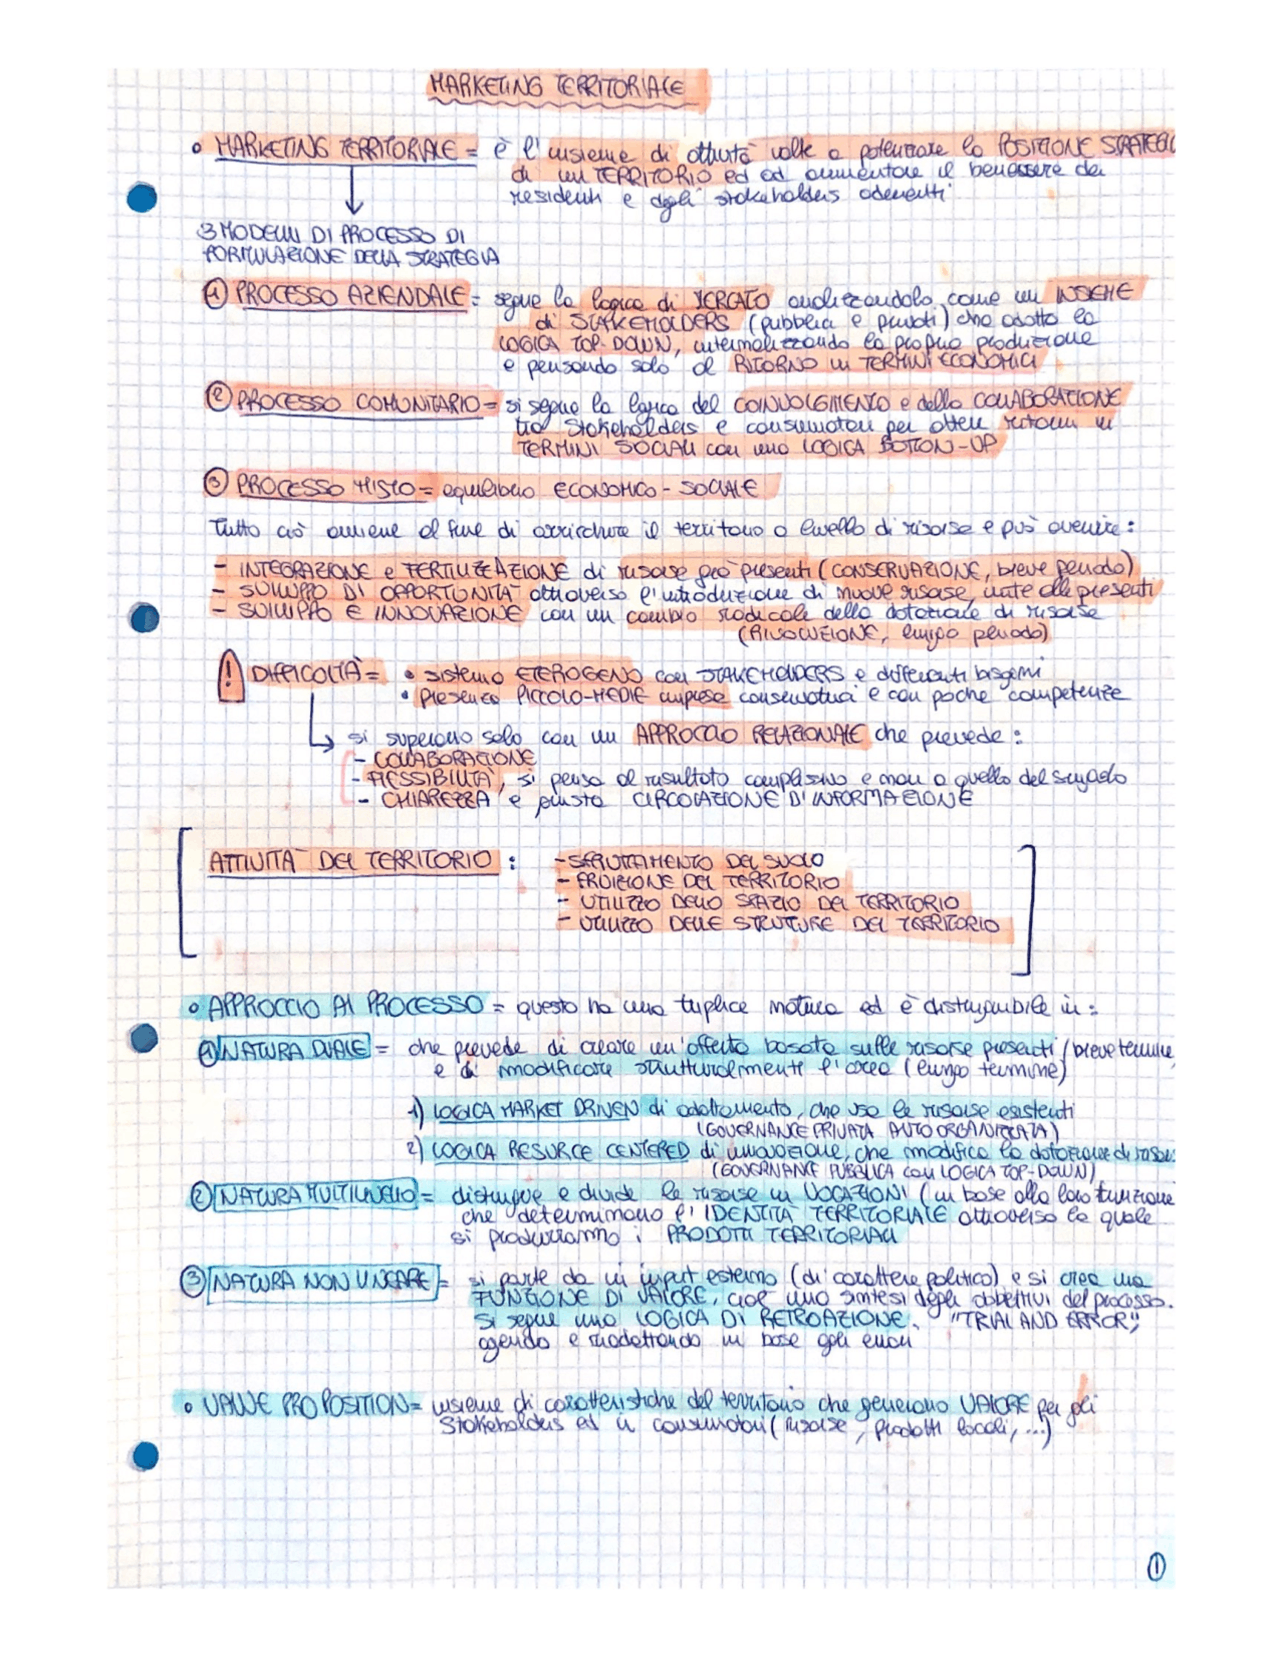 MARKETING TERRITORIALE
• MARKETING TERRITORIALE = è l'insieme di attività volte a potenziare la POSIZIONE STRATEGIC
di un TERRITORIO ed ad aumentare il benessere dei
residenti e degli stakeholders aderenti
3 MODELLI DI PROCESSO DI
FORMULAZIONE DELLA STRATEGIA
① PROCESSO AZIENDALE = segue la logica di MERCATO analizzandolo come un INSIEME
di STAKEHOLDERS (pubblici e privati) che adotta la
LOGICA TOP-DOWN, internalizzando la propria produzione
e pensando solo al RITORNO in TERMINI ECONOMICI
② PROCESSO COMUNITARIO = si segue la logica del COINVOLGIMENTO e della COLLABORAZIONE
tra stakeholders e consumatori per ottere ritorni in
TERMINI SOCIALI con una LOGICA BOTTON-UP
③ PROCESSO MISTO = equilibrio ECONOMICO-SOCIALE
Tutto ciò avviene al fine di arricchire il territorio a livello di risorse e può avenire:
- INTEGRAZIONE e FERTILIZZAZIONE di risorse già presenti (CONSERVAZIONE, breve periodo)
- SVILUPPO DI OPPORTUNITÀ attraverso l'introduzione di nuove risorse, unite alle presenti
- SVILUPPO E INNOVAZIONE con un cambio radicale della dotazione di risorse
(RIVOLUZIONE, lungo periodo)
! DIFFICOLTÀ = • sistema ETEROGENO con STAKEHOLDERS e differenti bisogni
• presenza PICCOLO-MEDIE imprese conservatrici e con poche competenze
si superano solo con un APPROCCIO RELAZIONALE che prevede:
- COLLABORAZIONE
- FLESSIBILITÀ, si pensa al risultato complessivo e non a quello del singolo
- CHIAREZZA e giusta CIRCOLAZIONE D'INFORMAZIONE
ATTIVITÀ DEL TERRITORIO: - SFRUTTAMENTO DEL SUOLO
- FRUIZIONE DEL TERRITORIO
- UTILIZZO DELLO SPAZIO DEL TERRITORIO
- UTILIZZO DELLE STRUTTURE DEL TERRITORIO
• APPROCCIO AI PROCESSO = questo ha una triplice natura ed è distinguibile in:
① NATURA DUALE = che prevede di creare un'offerta basata sulle risorse presenti (breve termine
e di modificare strutturalmente l'area (lungo termine)
1) LOGICA MARKET DRIVEN di adattamento, che usa le risorse esistenti
(GOVERNANCE PRIVATA AUTORGANIZZATA)
2) LOGICA RESURCE CENTERED di innovazione, che modifica la dotazione di risorse
(GOVERNANCE PUBBLICA con LOGICA TOP-DOWN)
② NATURA MULTILIVELLO = distingue e divide le risorse in VOCAZIONI (in base alla loro funzione
che determinano l'IDENTITÀ TERRITORIALE attraverso la quale
si produrranno i PRODOTTI TERRITORIALI
③ NATURA NON LINEARE = si parte da un input esterno (di carattere politico) e si crea una
FUNZIONE DI VALORE, cioè una sintesi degli obbiettivi del processo.
Si segue una LOGICA DI RETROAZIONE, "TRIAL AND ERROR",
agendo e riadattando in base agli errori
• VALUE PROPOSITION = insieme di caratteristiche del territorio che generano VALORE per gli
Stakeholders ed i consumatori (risorse, prodotti locali, ...)
①